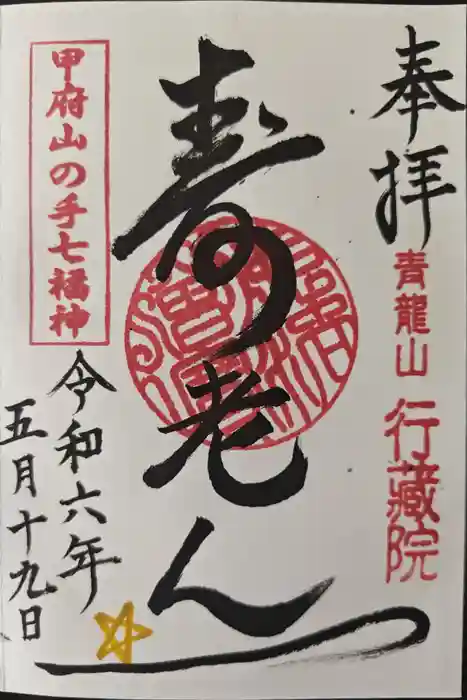 奉拝
青龍山 行蔵院
寿老人
甲府山の手七福神
令和六年
五月十九日